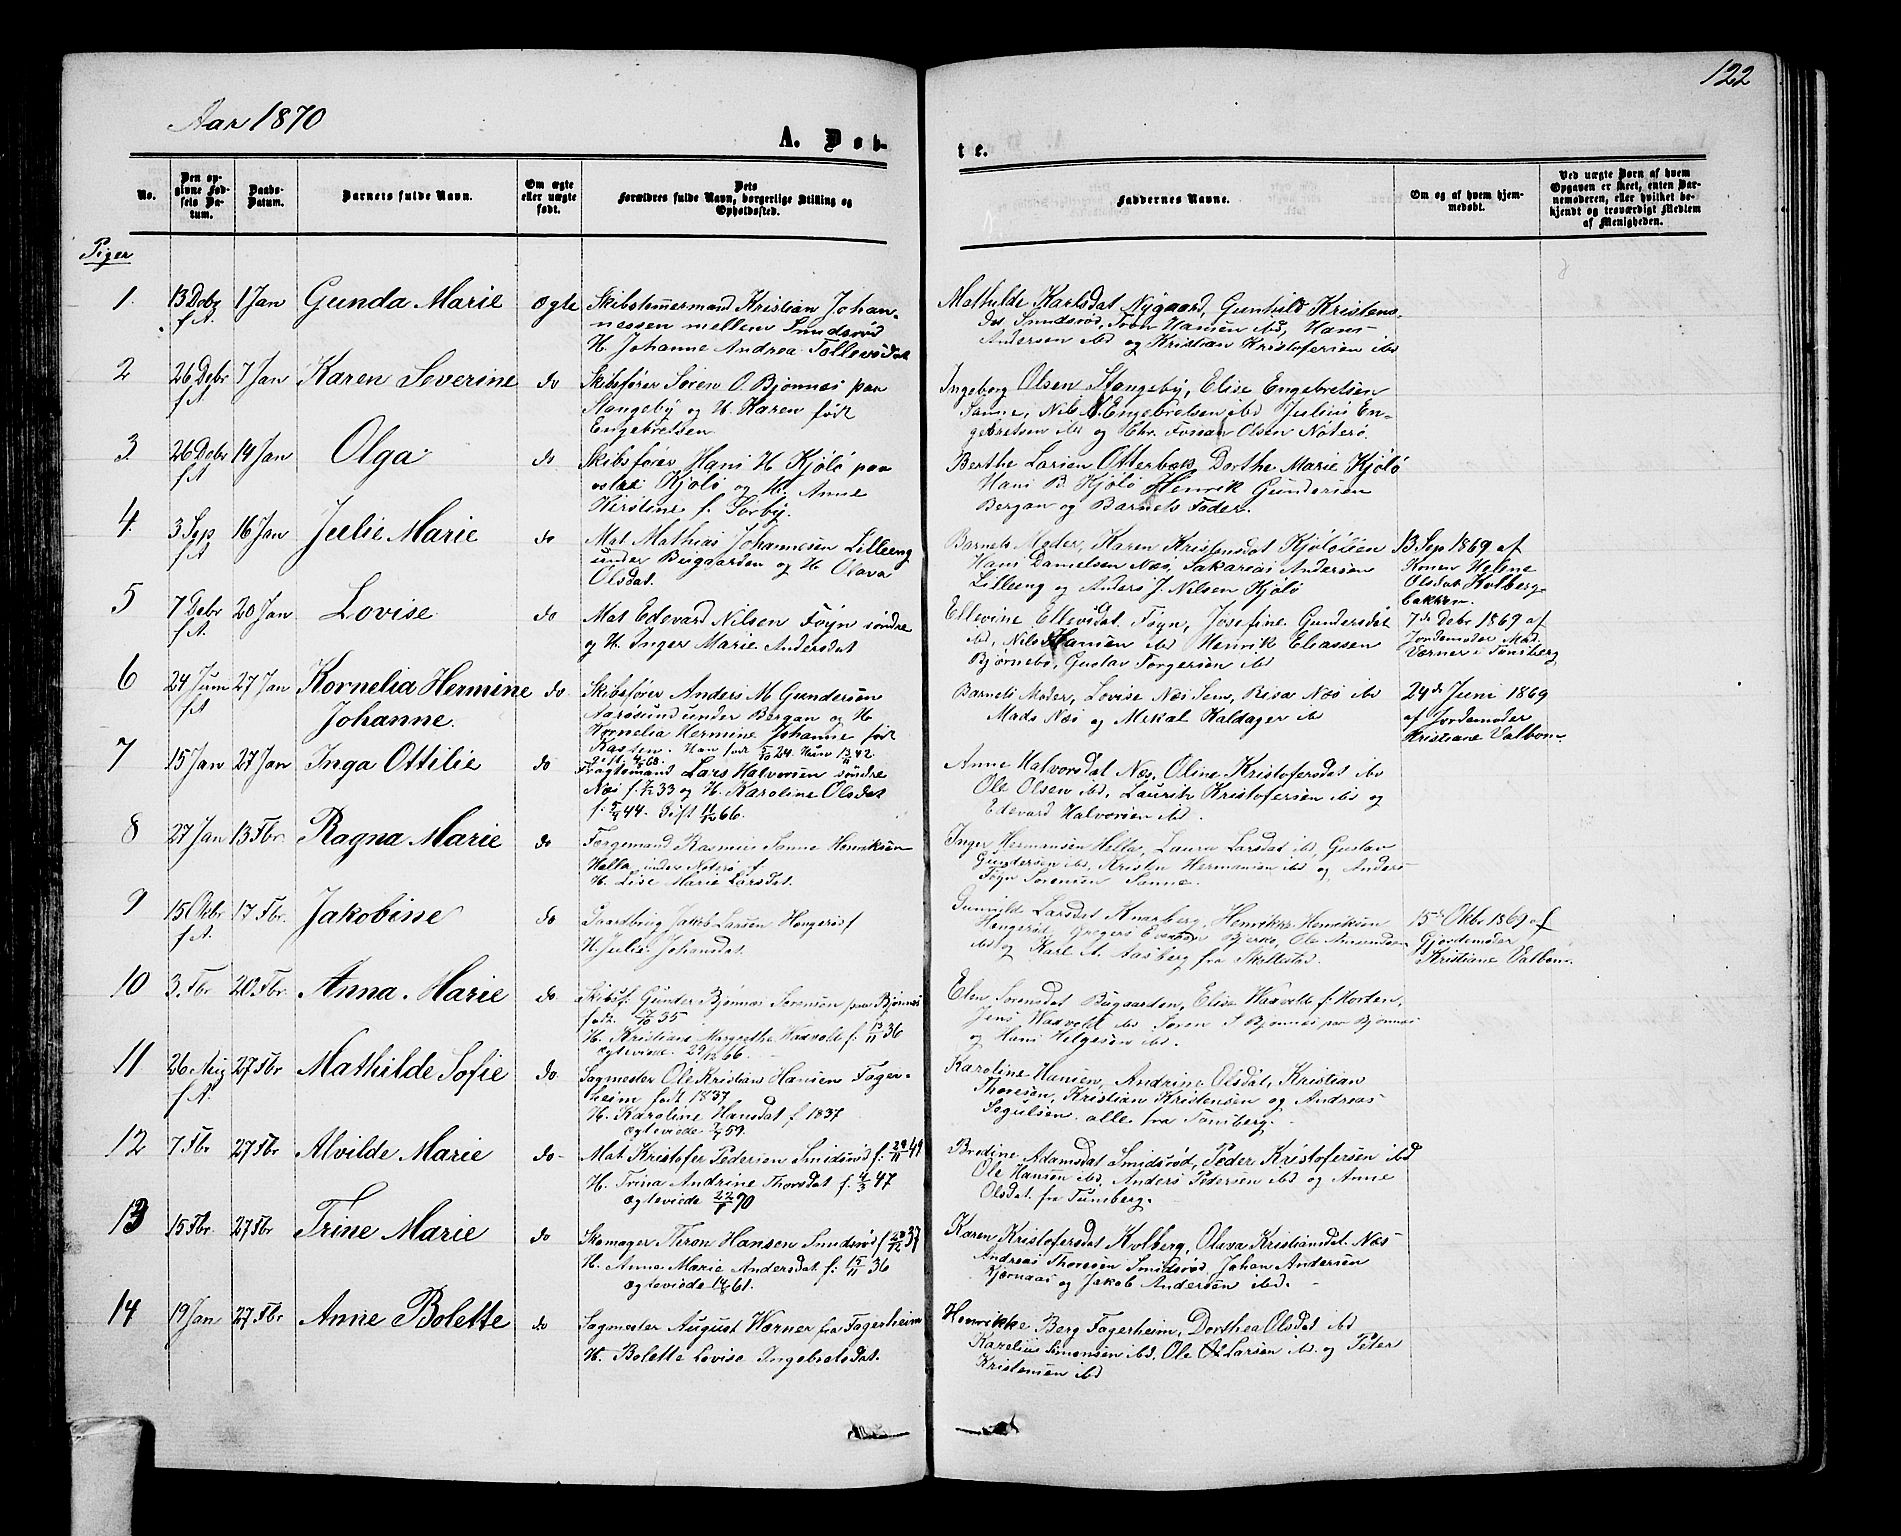 122
Aar 1870
A. Døb-
te.
No.
Den op-
givne Fød-
sels Da-
tum.
Daabs-
Datum.
Barnets fulde Navn.
Om ægte
eller uægte
født.
Dets
Forældres fulde Navn, borgerlige Stilling og
Opholdssted.
Faddernes Navne.
Om og af hvem hjem-
medøbt.
Ved uægte Børn af hvem
Opgaven er skeet, enten Bar-
nemoderen, eller hvilket be-
kjendt og troværdigt Medlem
af Menigheden.
Piger
1. 13 Debr 1 Jan Gunda Marie ægte Skibstømermand Kristian Johan-
f A. nessen mellem Smidsrød
H. Johanne Andrea Tollevsdat
Mathilde Karlsdat Nygaard, Gunhild Kristens-
dat Smidsrød, Thor Hansen ibd, Hans
Andersen ibd og Kristian Kristofersen ibd
2 26 Debr 7 Jan Karen Severine do Skibsfører Søren O. Bjønnæs paa
f A Stangeby og H. Karen født
Engebretsen
Ingeborg Olsen Stangeby, Elise Engebretsen
Sanne, Nils Engebretsen ibd Julius En-
gebretsen ibd og Chr. Olsen Nøterø.
3. 26 Debr 14 Jan Olga do Skibsfører Hans H Kjølø paa
f A Kjølø og H. Anne
Kirstine f. Sørby.
Berthe Larsen Otterbæk, Dorthe Marie Kjølø
Hans B. Kjølø Henrik Gundersen
Bergan og Barnets Fader.
4. 3 Sep 16 Jan Julie Marie do Mat Mathias Johannesen Lilleeng
f A under Bugaarden og H. Olava
Olsdat.
Barnets Moder, Karen Kristensdat Kjøløien
Hans Danielsen Næs, Sakarias Andersen
Lilleeng og Anders J. Nilsen Kjølø
13 Sep 1869 af
Konen Helene
Olsdat Kolberg-
bakken.
5 7 Debr 20 Jan Lovise do Mat Edevard Nilsen Føyn søndre
f A. og H. Inger Marie Andersdat
Ellevine Ellevsdat Føyn, Josefine Gundersdat
ibd, Nils Hansen ibd Henrik Eliassen
Bjørnebo, Gustav Torgersen ibd
7de Debr 1869 af
Jordemoder Mad.
Værner i Tønsberg
6 24 Juni 27 Jan Kornelia Hermine do Skibsfører Anders M. Gundersen
f A Johanne. Aarøsund under Bergan og H
Kornelia Hermine Johanne født
Karsten. Han født 5/10 24. Hun 13/11 42
Barnets Moder, Lovise Næs Sem, Risa Næs ibd
Mads Næs og Mikal Kaldager ibd
24de Juni 1869
af Jordemoder
Kristiane Valbom.
7 15 Jan 27 Jan Inga Ottilie do Fragtemand Lars Halvorsen søndre
Næs f. 7/12 33 og H. Karoline Olsdat
f. 5/4 44. Gift 11/12 66.
Anne Halvorsdat Næs, Oline Kristofersdat ibd
Ole Olsen ibd, Laurits Kristofersen ibd og
Edevard Halvorsen ibd.
8 27 Jan 13 Fbr. Ragna Marie do Færgemand Rasmus Sanne Henriksen
Hella under Nøterø f
H. Lise Marie Larsdat.
Inger Hermansen Hella, Laura Larsdat ibd, Gustav
Gundersen ibd, Kristen Hermansen ibd og Anders
Føyn Sørensen Sanne.
9 15 Okbr 17 Fbr. Jakobine do Gaardbrug Jakob Larsen Hengerød
f A. H. Julie Johansdat.
Gunvilde Larsdat Knarberg, Henrikke Henriksen
Hengerød, Gregers Evensen Bjerke, Ole Amundsen
ibd og Karl A. Aasberg fra Skallestad.
15de Okbr 1869 af
Gjordemoder
Kristiane Valbom.
10 3. Fbr 20. Fbr. Anna. Marie do Skibsf. Gunder Bjønnæs Sørensen paa Bjønnæs
født 17/10 35
H. Kristiane Margrethe Waxvold f. 13/11 36
Ægteviede 29/12 66.
Elen Sørensdat Bugaarden, Elise Waxvold f. Horten,
Jens Waxvold ibd Søren S Bjønnæs paa Bjønnæs
og Hans Helgesen ibd.
11 26 Aug 27 Fbr Mathilde Sofie do Sagmester Ole Kristians Hansen Fager-
f A. heim født 1837
H. Karoline Hansdat f 1837
Ægteviede 7/7 59.
Karoline Hansen, Andrine Olsdat, Kristian
Thoresen, Kristian Kristensen og Andreas
Segulsen alle fra Tønsberg.
12 7 Fbr 27 Fbr Alvilde Marie do- Mat. Kristofer Pedersen Smidsrød f. 29/11 49
H. Trina Andrine Thorsdat f. 4/3 47
Ægteviede 22/1 70
Bredine Adamsdat Smidsrød, Peder Kristofersen ibd
Ole Hansen ibd. Anders Pedersen ibd og Anne
Olsdat. fra Tønsberg.
13 15 Fbr. 27 Fbr Trine Marie do Skomager Theron Hansen Smidsrød f 29/12 37
H. Anne Marie Andersdat. f: 15/11 36
Ægteviede 14/4 61.
Karen Kristofersdat Kolberg, Olava Kristiansdat. Næs
Andreas Thoresen Smidsrød, Johan Andersen
Bjørnaas og Jakob Andersen ibd.
14 19 Jan 27 Fbr Anne Bolette do Sagmester August Wærner fra Fagerheim
H. Bolette Lovise Ingebretsdat.
Henrikke Berg Fagerheim, Dorthea Olsdat ibd
Karelius Simonsen ibd, Ole Larsen ibd. og Peter
Kristensen ibd